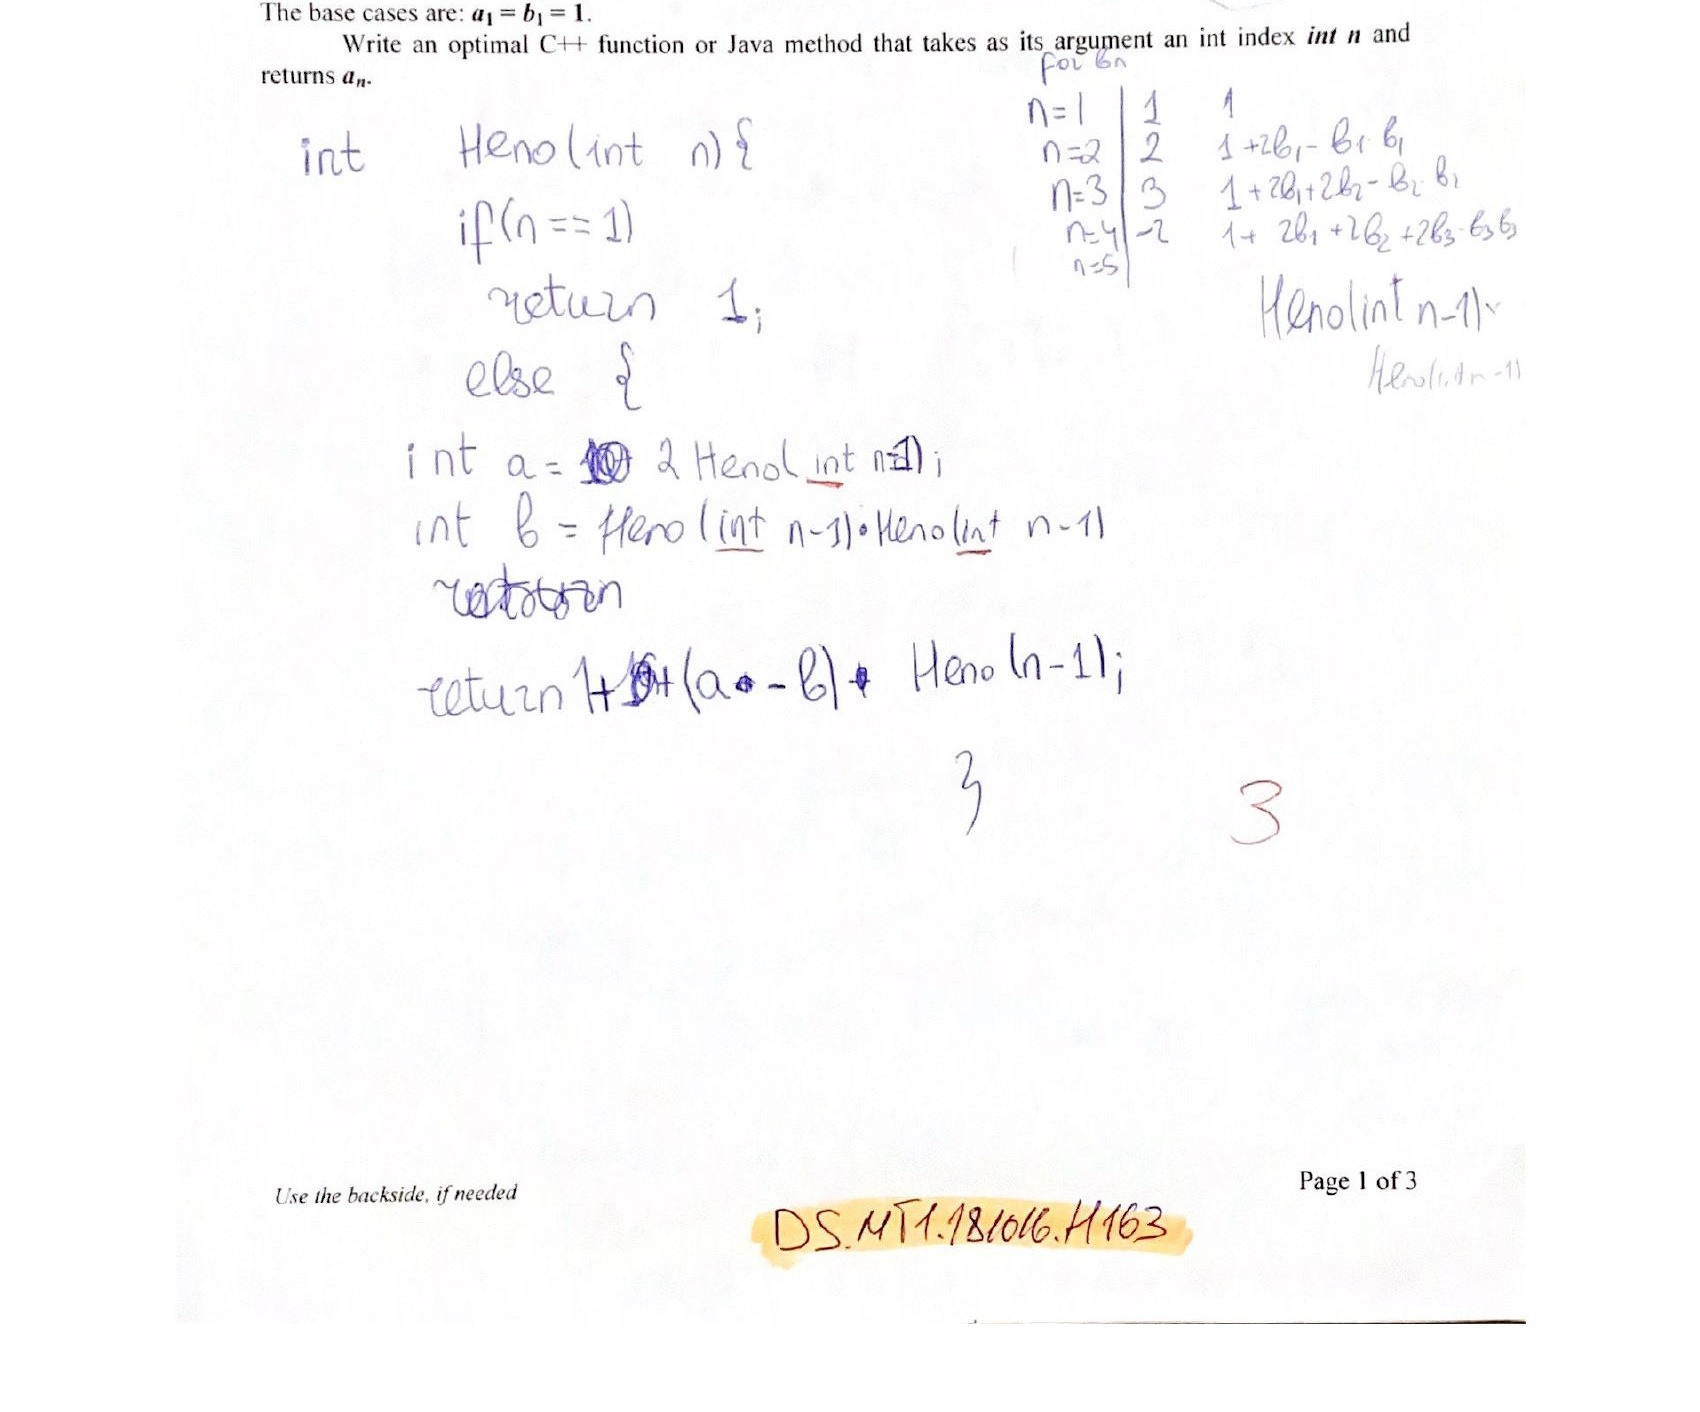 The base cases are: a₁ = b₁ = 1.
Write an optimal C++ function or Java method that takes as its argument an int index int n and
returns aₙ.
for bn
n=1 | 1 1
n=2 | 2 1+2b₁- b₁ b₁
n=3 | 3 1+2b₁+2b₂- b₂ b₂
n=4 | -2 1+ 2b₁ +2b₂ +2b₃-b₃b₃
n=5 |
Heno(int n-1)
Heno(int n-1)
int Heno(int n){
if(n == 1)
return 1;
else {
int a = 2 Heno(int n-1);
int b = Heno(int n-1)•Heno(int n-1)
return 1+ (a - b) + Heno(n-1);
}
3
Use the backside, if needed
Page 1 of 3
DS.MT1.181016.H163